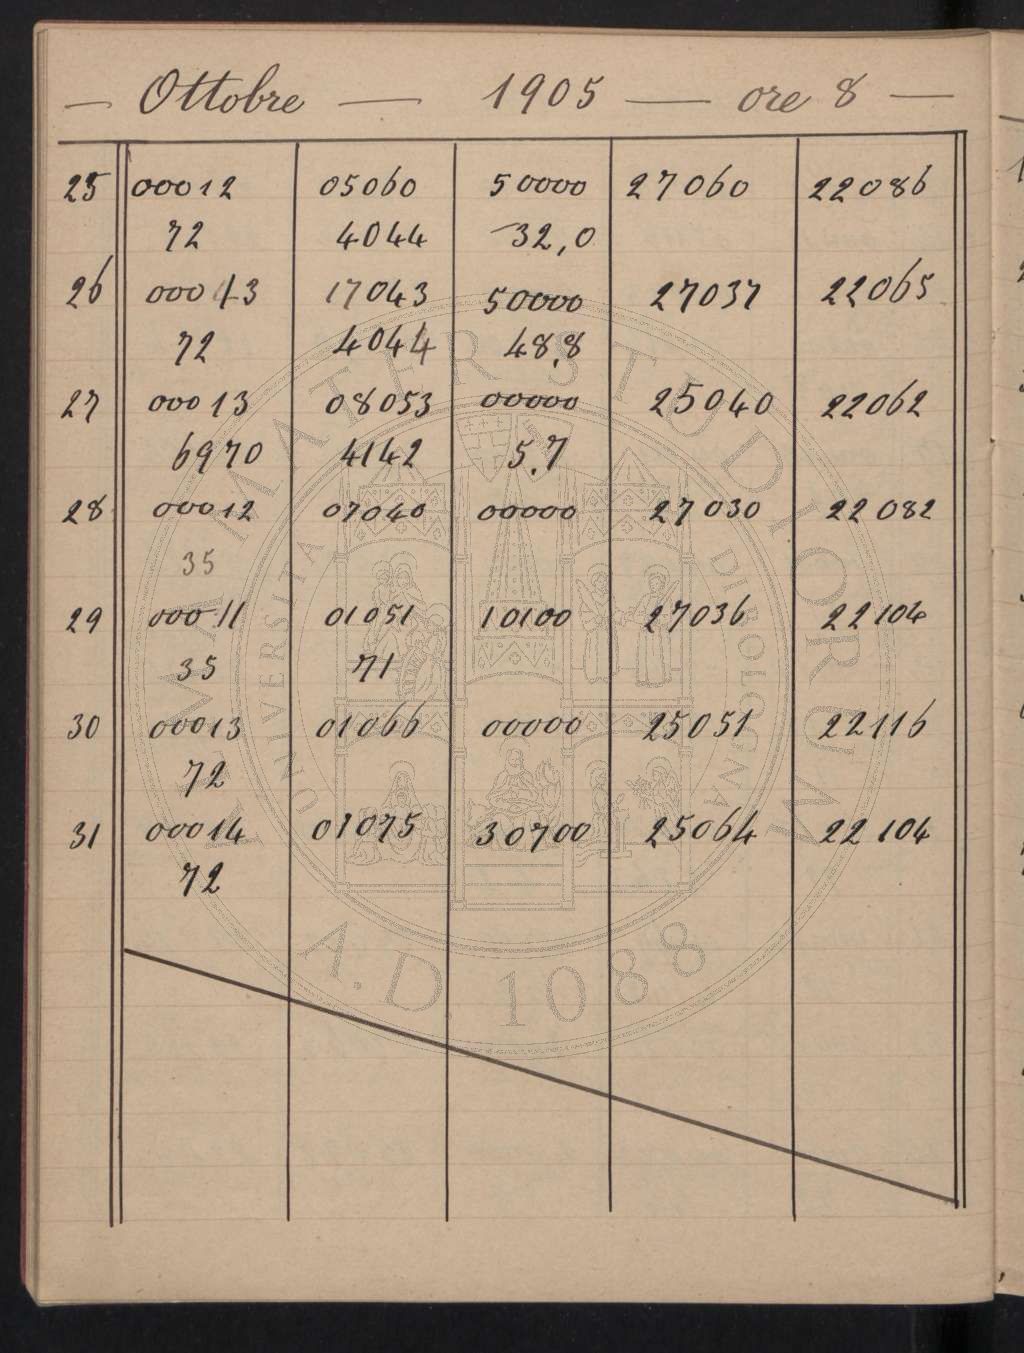 Ottobre 1905 ore 8
25 00012 05060 50000 27060 22086
72 4044 32,0
26 00013 17043 50000 27037 22065
72 4044 48.8
27 00013 08053 00000 25040 22062
6970 4142 5.7
28 00012 07040 00000 27030 22082
35
29 00011 01051 10100 27036 22104
35 71
30 00013 01066 00000 25051 22116
72
31 00014 01075 30700 25064 22104
72
ALMA MATER STUDIORUM
UNIVERSITA DI BOLOGNA
A.D. 1088